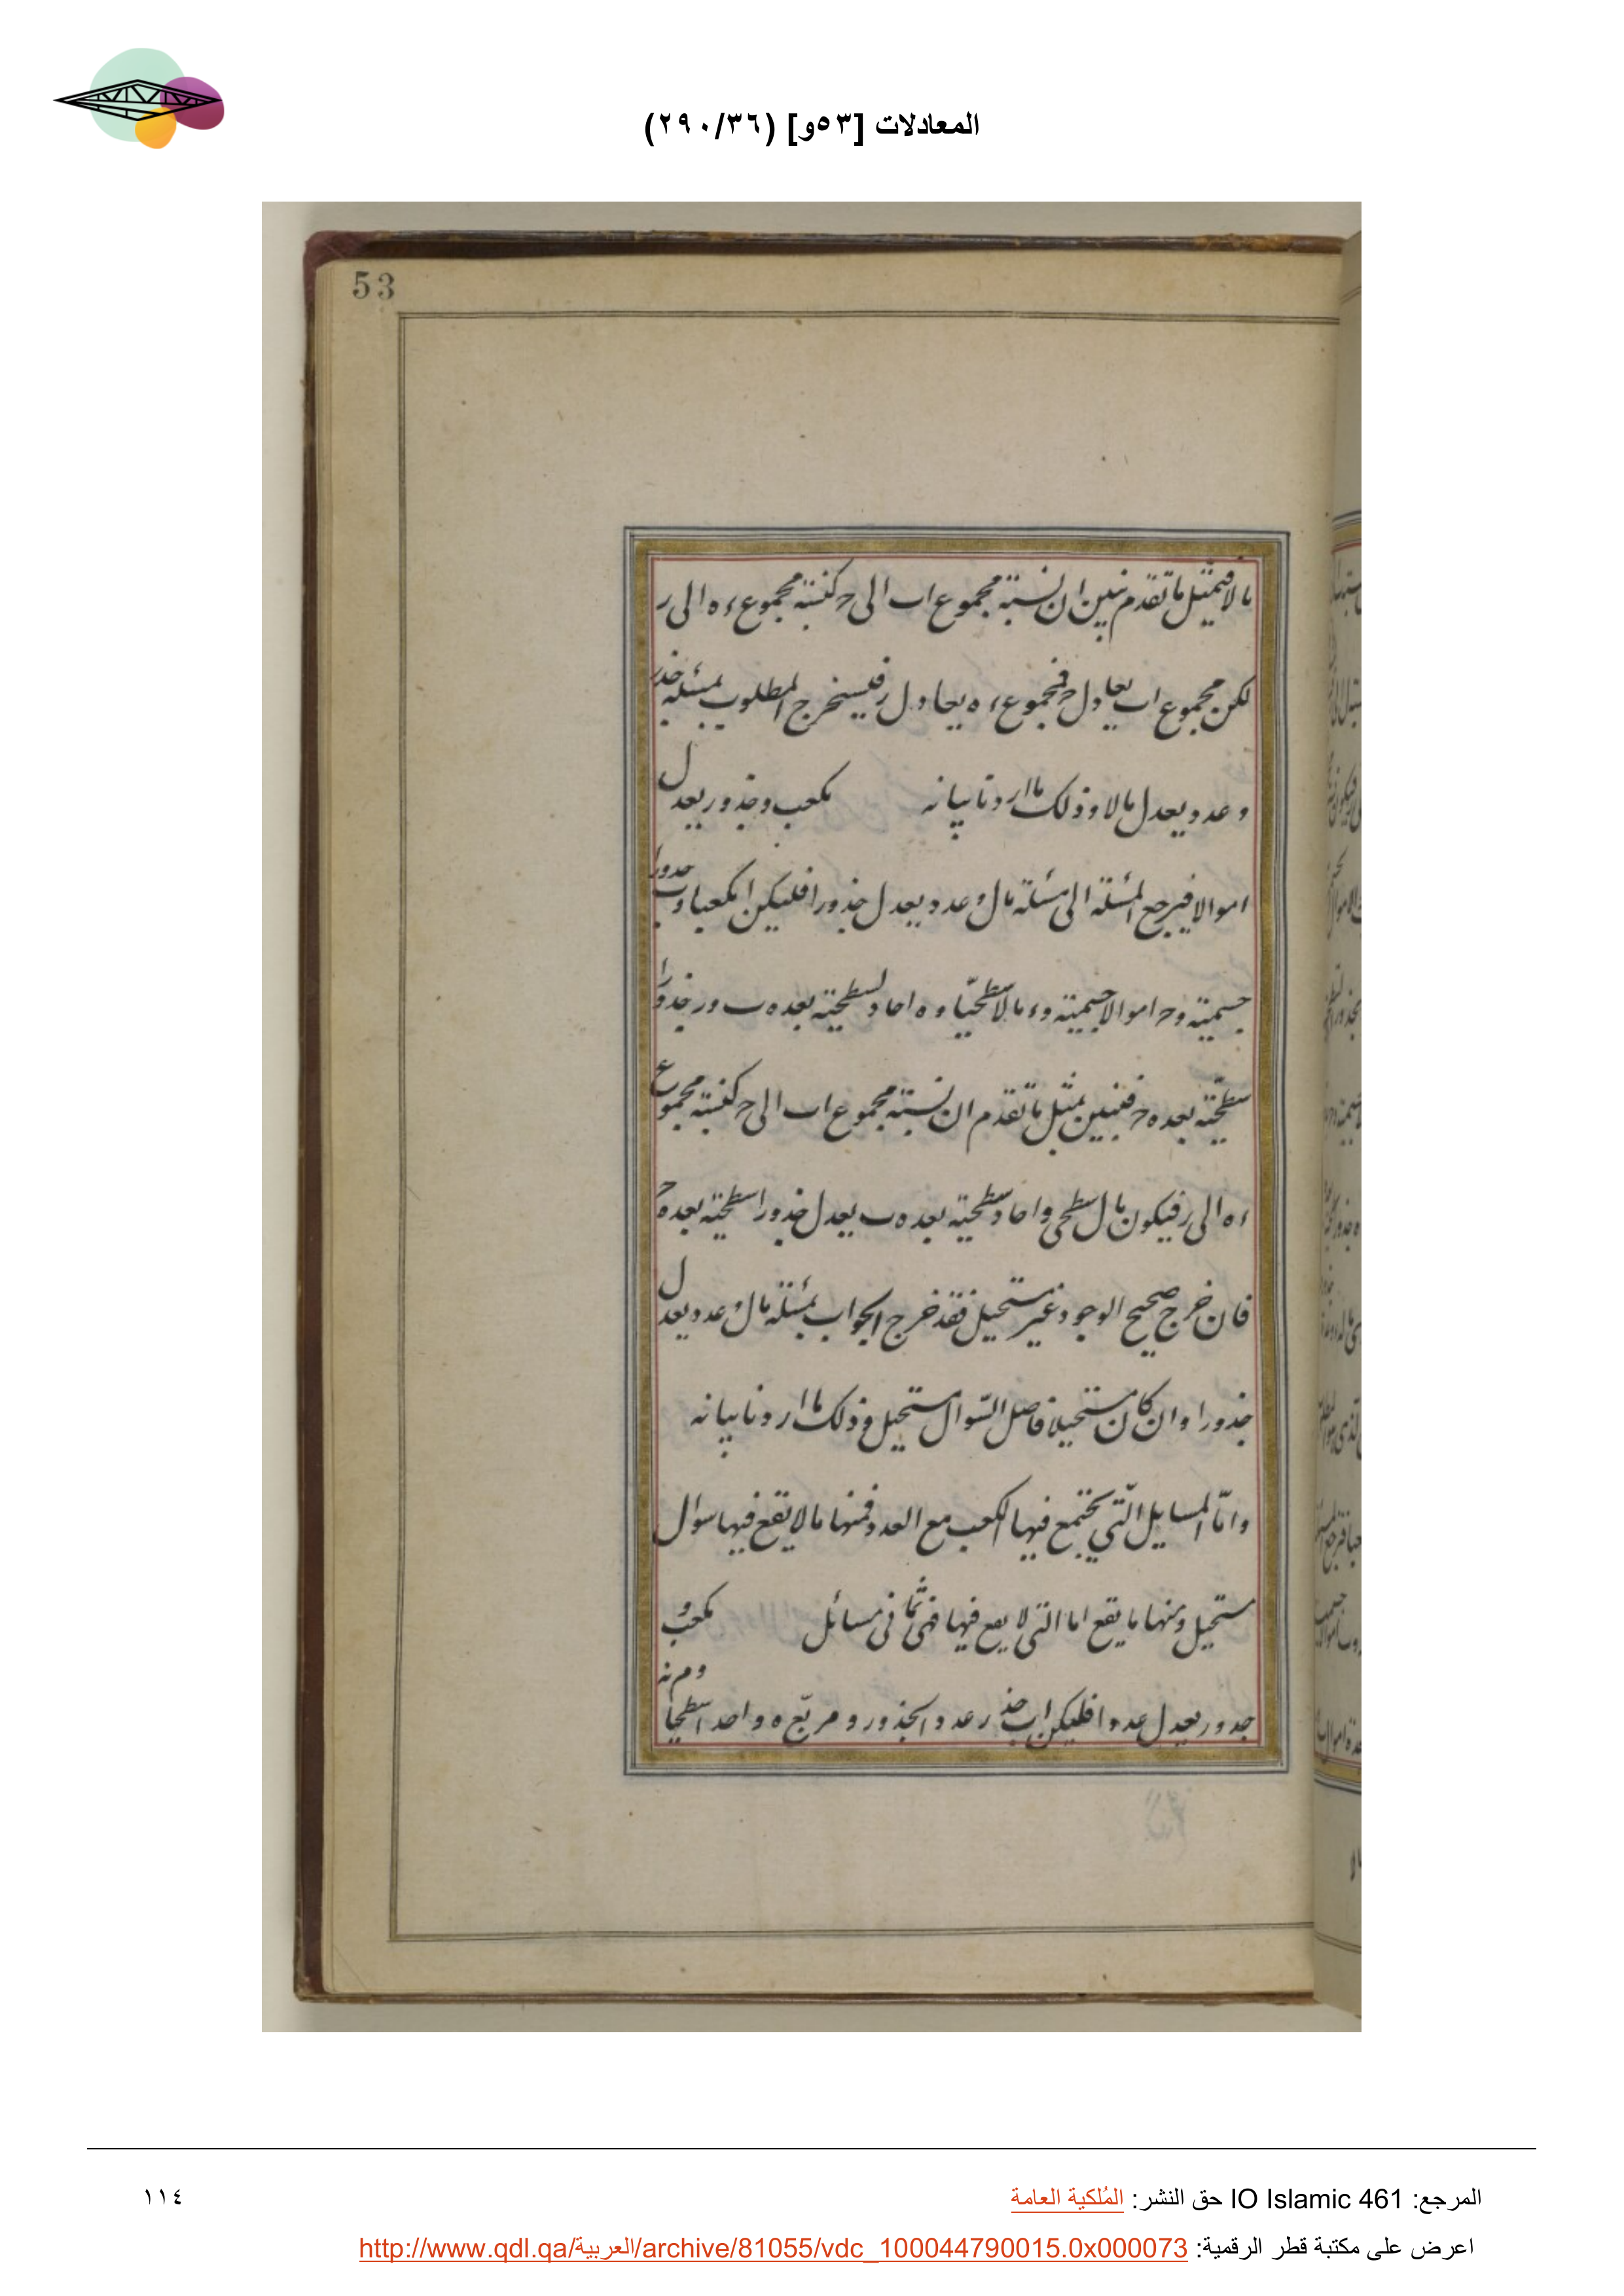 المعادلات [٥٣و] (٢٩٠/٣٦)
53
مالا فبمثل ما تقدم نبين ان نسبة مجموع اب الى ح كنسبة مجموع ء ه الى ر
لكن مجموع اب يعادل ح فمجموع ء ه يعادل ر فيستخرج المطلوب بمسئلة جذر
وعدد يعدل مالا وذلك ما اردنا بيانه مكعب وجذور يعدل
اموالا فيرجع المسئلة الى مسئلة مال وعدد يعدل جذورا فليكن ا مكعبا وب جذورا
جسمية وح اموالا جسمية وء مالا سطحيا وه احاد سطحية بعده ب ور جذورا
سطحية بعده ح فنبين بمثل ما تقدم ان نسبة مجموع اب الى ح كنسبة مجموع
ء ه الى ر فيكون مال سطحى واحاد سطحية بعده ب يعدل جذورا سطحية بعده ح
فان خرج صحيح الوجود غير مستحيل فقد خرج الجواب بمسئلة مال وعدد يعدل
جذورا وان كان مستحيلا فاصل السّوال مستحيل وذلك ما اردنا بيانه
وامّا المسايل الّتي يجتمع فيها المكعب مع العدد فمنها ما لا يقع فيها سوال
مستحيل ومنها ما يقع اما التى لا يقع فيها فهى ثمانى مسائل مكعب و
جذور يعدل عددا فليكن اب جذر عدد الجذور ومربّع ه واحدا سطحيا
المرجع: IO Islamic 461 حق النشر: المُلكية العامة
١١٤
اعرض على مكتبة قطر الرقمية: http://www.qdl.qa/العربية/archive/81055/vdc_100044790015.0x000073